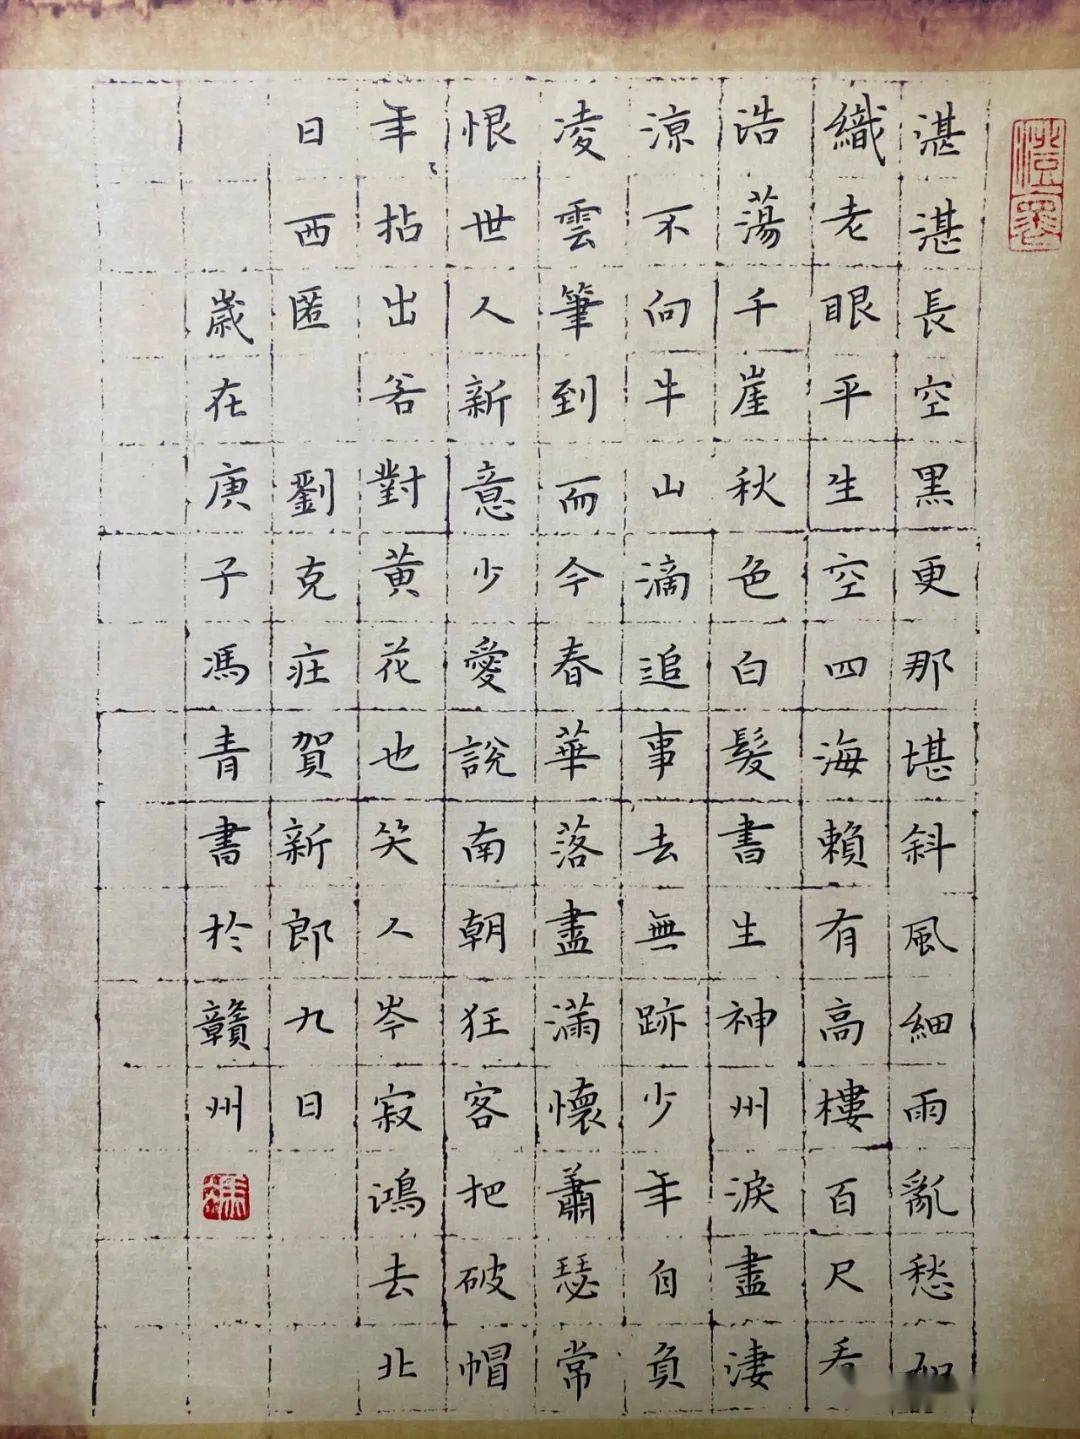 湛湛長空黑更那堪斜風細雨亂愁如
織老眼平生空四海賴有高樓百尺看
浩蕩千崖秋色白髮書生神州淚盡淒
涼不向牛山滴追事去無跡少年自負
凌雲筆到而今春華落盡滿懷蕭瑟常
恨世人新意少愛說南朝狂客把破帽
年、拈出若對黃花也笑人岑寂鴻去北
日西匿 劉克莊賀新郎九日
歲在庚子馮青書於贛州